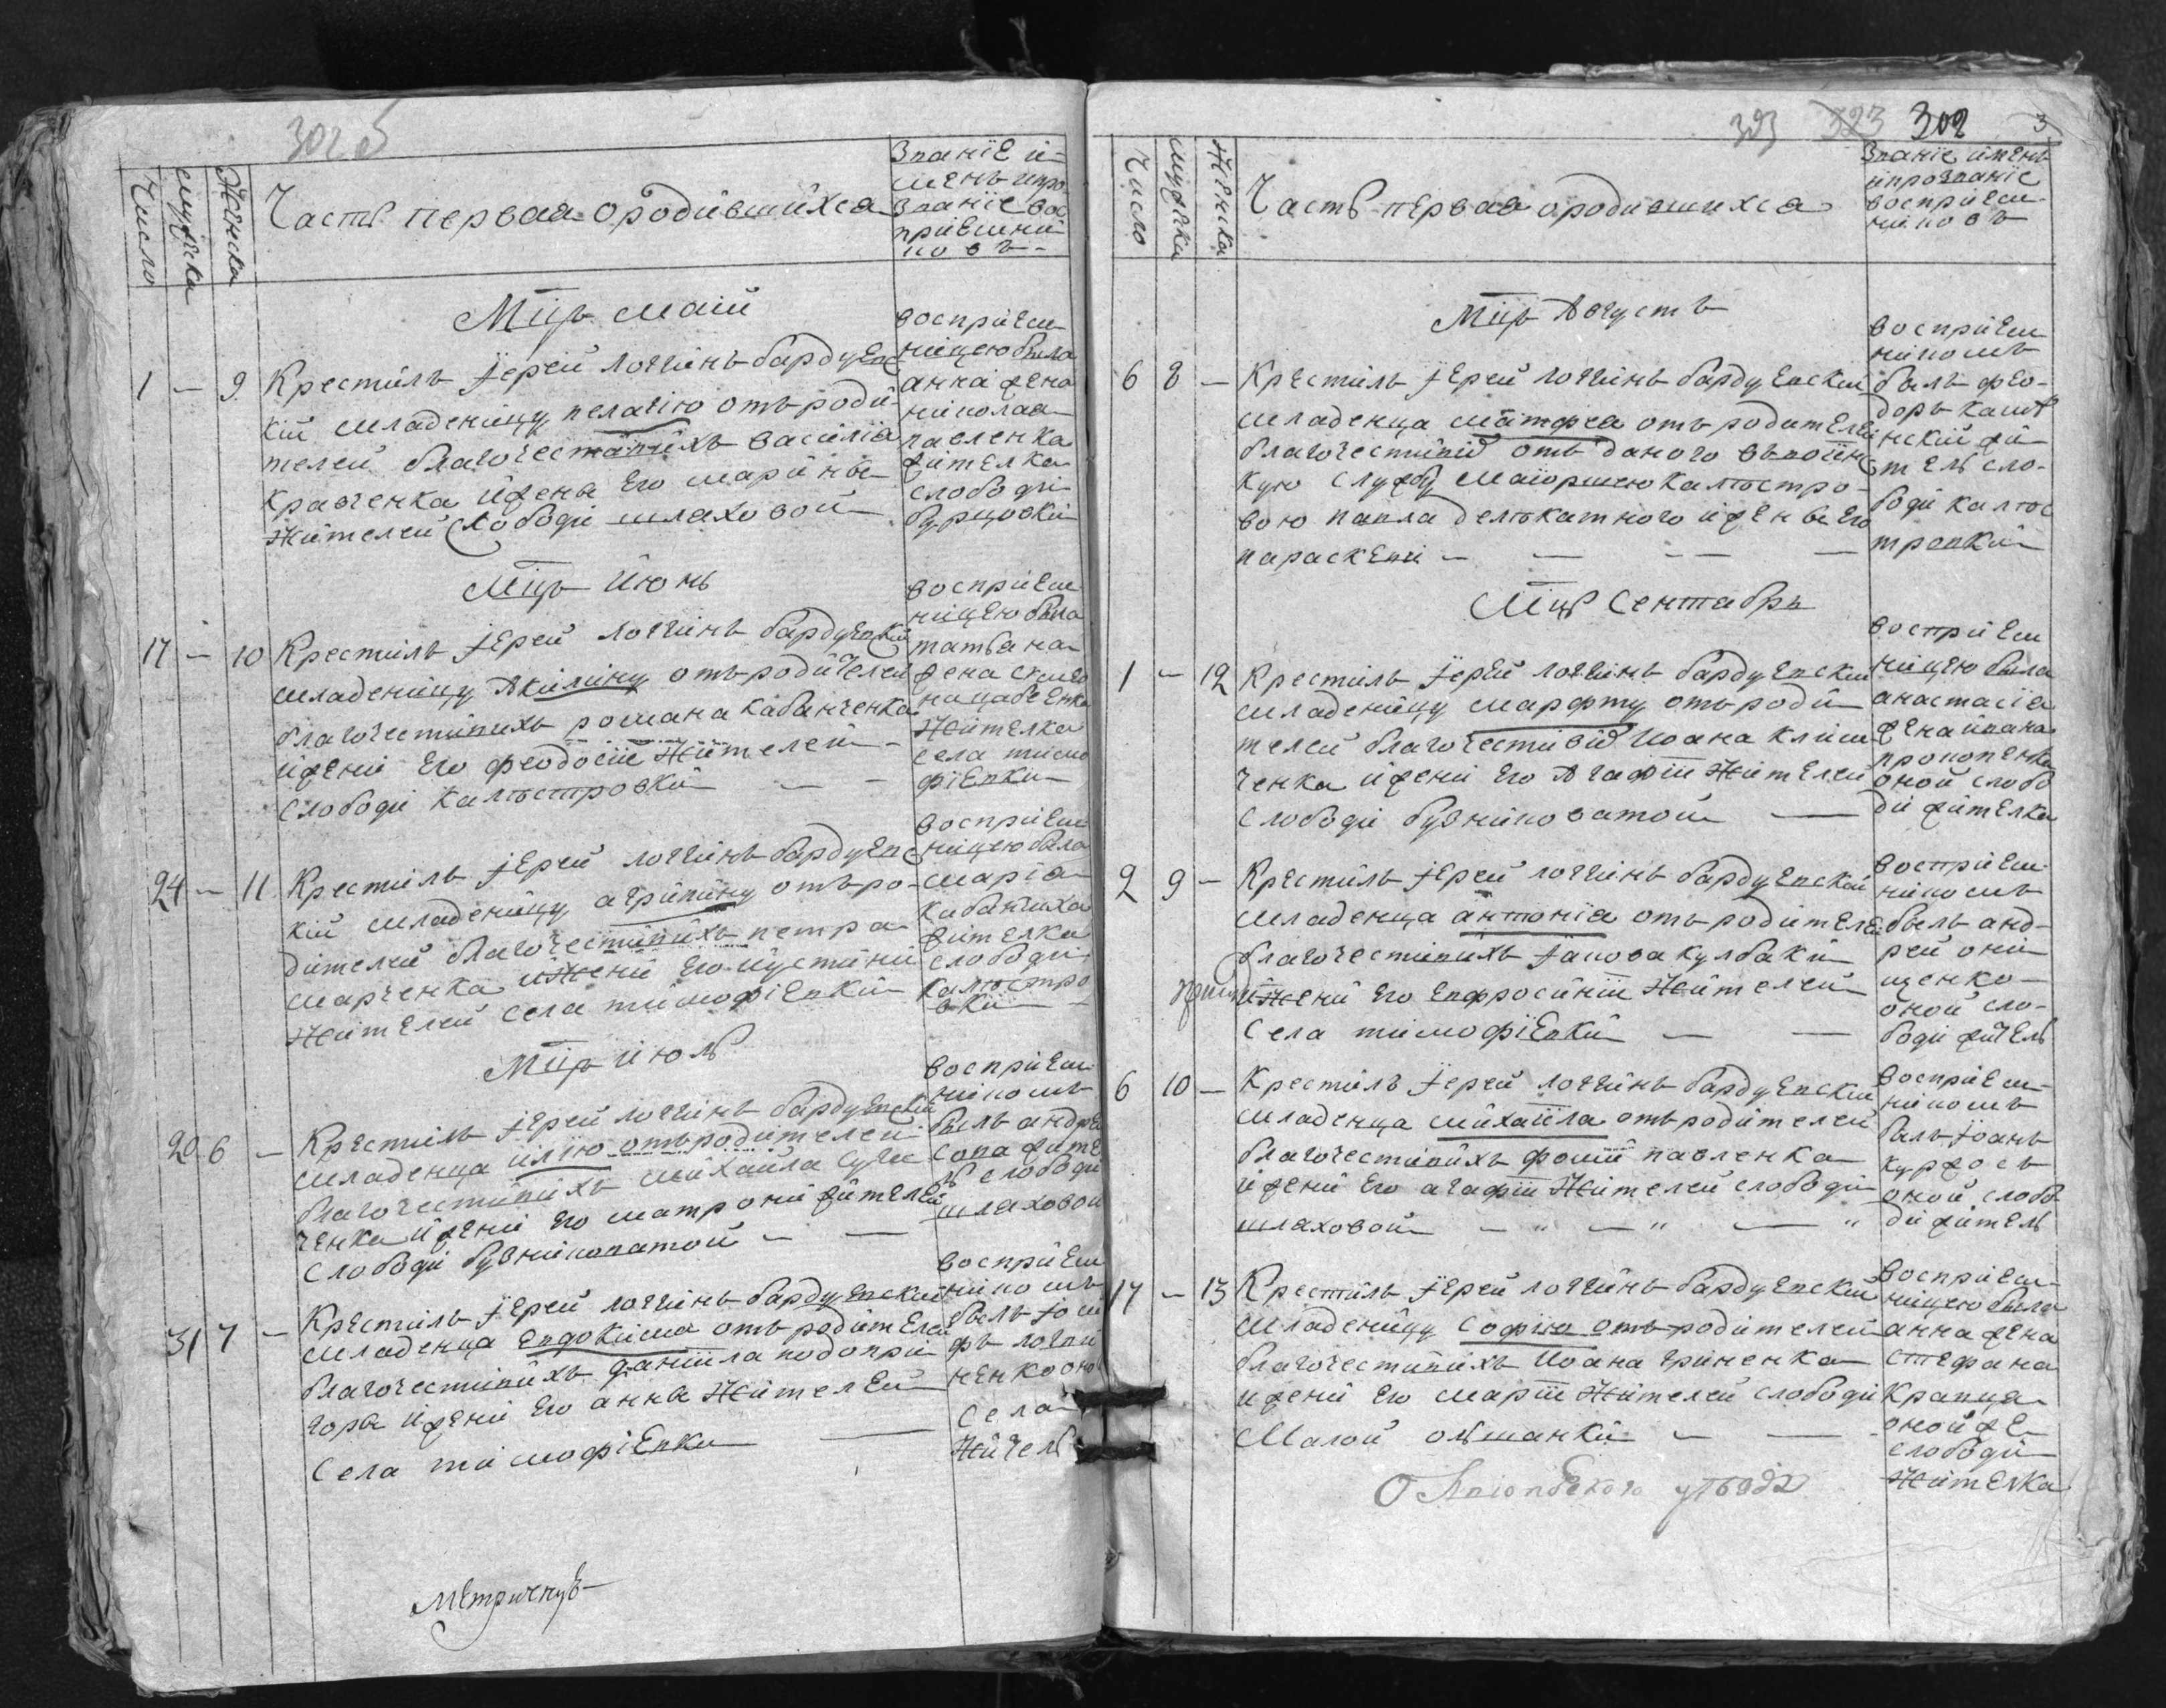 302 б
Число
мужеска
Женска
Часть первая ородившихся
Званїе и-
менъ ипро-
званїе вос
прїемни
ковъ-
Мцъ маій
1 — 9 Крестилъ їерей логгинъ бардуевс
кій младеницу пелагїю отъ роди-
телей благочестивихъ василїя
кравченка ижены Его марины
Жителей слободи шляховой
воспрїем
ницею была
анна жена
николая
павленка
жителка
слободи
бурцовки
Мцъ июнь
17 — 10 Крестилъ їерей логгинъ бардуевскій
младеницу Акилину отъ родителей
благочестивихъ романа кабанченка
ижени Его феодосїи Жителей
слободи калюстровки — —
воспрїем
ницею была
татьяна
жена
Жителка
села тимо
фїевки
24 — 11 Крестилъ їерей логгинъ бардуевс
кій младеницу агрипину отъ ро-
дителей благочестивихъ петра
марченка ижени Его иустини
Жителей села тимофїевки
воспрїем
ницею была
марїя
кибанчиха
жителка
слободи
калюстро
вки
Мцъ июль
20 6 — Крестилъ їерей логгинъ бардуевскій
младенца илїю отъ родителей
благочестивихъ михаила сулс
ченка ижени Его матрони жителей
слободи бузниковатой — —
воспрїем
никомъ
былъ андре
сопа жите
ль слободи
шляховой
31 7 — Крестилъ їерей логгинъ бардуевскій
младенца евдокима отъ родителей
благочестивихъ данїила подопри
горы ижени Его анны Жителей
села тимофїевки —
воспрїем
никомъ
былъ їоси
фъ логви
ненко оно
села
Житель
Метричнук
393 323 302 3
Число
мужеска
Женска
Часть первая ородившихся
Званїе именъ
ипрозванїе
воспрїем-
никовъ
Мцъ Августъ
6 8 — Крестилъ їерей логгинъ бардуевскій
младенца матфея отъ родителей
благочестивих отъ даного въ воїнс
кую службу маїоршею калюстро-
вою павла деликатного ижены Его
параскеви — — — —
воспрїем
никомъ
былъ фео-
доръ
нскїй жи
тель сло-
боди калюс
тровки
Мцъ Сентябрь
1 — 12 Крестилъ їерей логгинъ бардуевскій
младеницу марфту отъ роди
телей благочестивих Иоана клим
ченка ижени Его Агафїи Жителей
слободи бузниковатой —
воспрїем
ницею была
анастасїя
жена ивана
прокопенка
оной слобо
ди жителка
2 9 — Крестилъ їерей логгинъ бардуевскій
младенца антонїя отъ родителей
благочестивихъ їакова кулбаки
ижени Его евфросинїи Жителей
села тимофїевки — —
воспрїем
никомъ
былъ анд-
рей они
щенко-
оной сло-
боди житель
6 10 — Крестилъ їерей логгинъ бардуевскій
младенца михаїила отъ родителей
благочестивихъ фоми павленка
ижени Его агафїи Жителей слободи
шляховой — „ — „ — „
воспрїем-
никомъ
былъ їоанъ
курдось
оной слобо
ди житель
17 — 13 Крестилъ їерей логгинъ бардуевскій
младеницу софїю отъ родителей
благочестивихъ Иоана гриненка
ижени Его марїи Жителей слободи
Малой олшанки — —
воспрїем-
ницею была
анна жена
стефана
кравца
оной же
слободи
Жителка